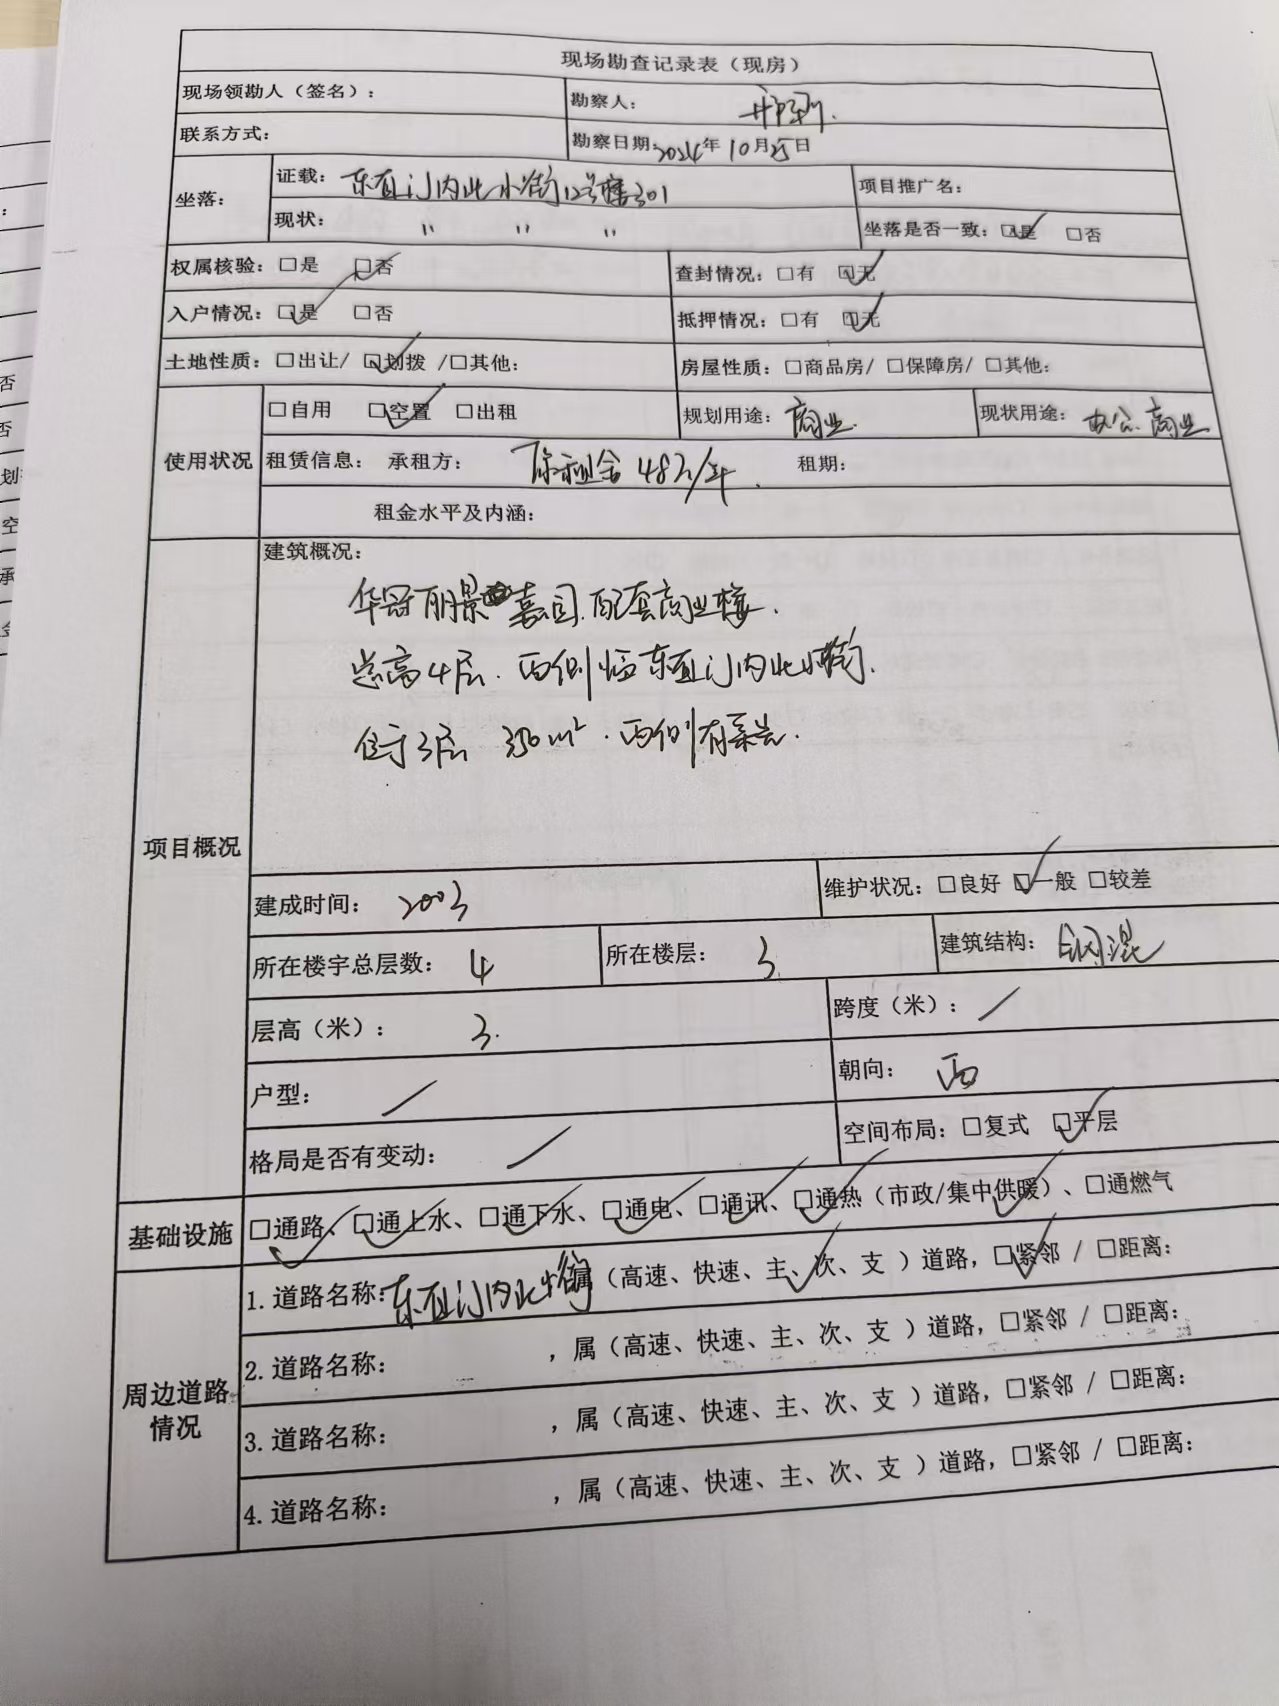 现场勘查记录表（现房）
现场领勘人（签名）：
勘察人：
联系方式：
勘察日期：2024年10月25日
坐落：
证载：东直门内北小街12号楼301
项目推广名：
现状： 〃 〃 〃
坐落是否一致：☑是 □否
权属核验：□是 ☑否
查封情况：□有 ☑无
入户情况：☑是 □否
抵押情况：□有 ☑无
土地性质：□出让/ ☑划拨 /□其他：
房屋性质：□商品房/ □保障房/ □其他：
使用状况
□自用 ☑空置 □出租
规划用途：商业
现状用途：办公.商业
租赁信息： 承租方： 原租金48万/年. 租期：
租金水平及内涵：
项目概况
建筑概况：
华冠丽景嘉园.配套商业楼.
总高4层.西侧临东直门内北小街.
位于3层 350m².西侧有采光.
建成时间： 2003
维护状况：□良好 ☑一般 □较差
所在楼宇总层数： 4
所在楼层： 3
建筑结构：钢混
层高（米）： 3.
跨度（米）： /
户型： /
朝向： 西
格局是否有变动： /
空间布局：□复式 ☑平层
基础设施
☑通路、☑通上水、☑通下水、☑通电、☑通讯、☑通热（市政/集中供暖）、□通燃气
周边道路情况
1.道路名称：东直门内北小街，属（高速、快速、主、次、支 ）道路，☑紧邻 / □距离：
2.道路名称： ，属（高速、快速、主、次、支 ）道路，□紧邻 / □距离：
3.道路名称： ，属（高速、快速、主、次、支 ）道路，□紧邻 / □距离：
4.道路名称： ，属（高速、快速、主、次、支 ）道路，□紧邻 / □距离：